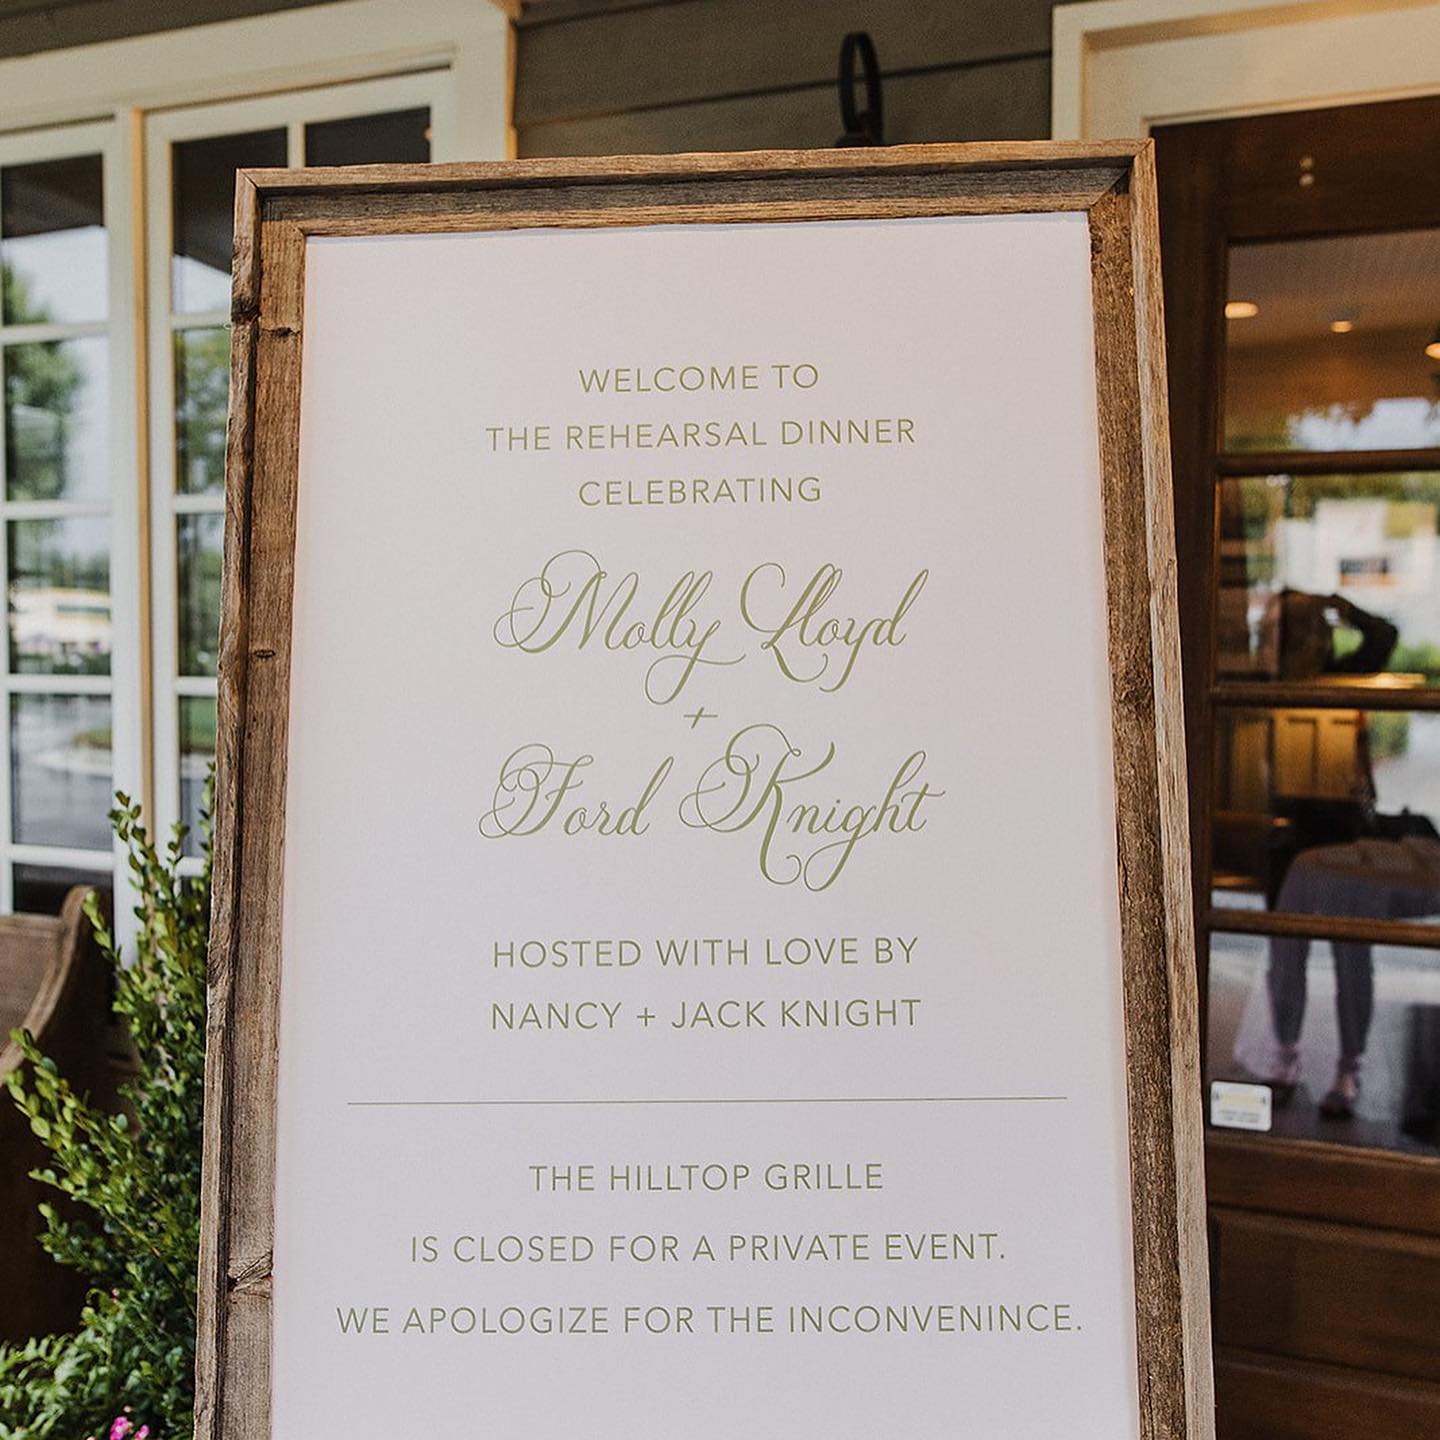 WELCOME TO
THE REHEARSAL DINNER
CELEBRATING
Molly Lloyd
+
Ford Knight
HOSTED WITH LOVE BY
NANCY + JACK KNIGHT
THE HILLTOP GRILLE
IS CLOSED FOR A PRIVATE EVENT.
WE APOLOGIZE FOR THE INCONVENINCE.